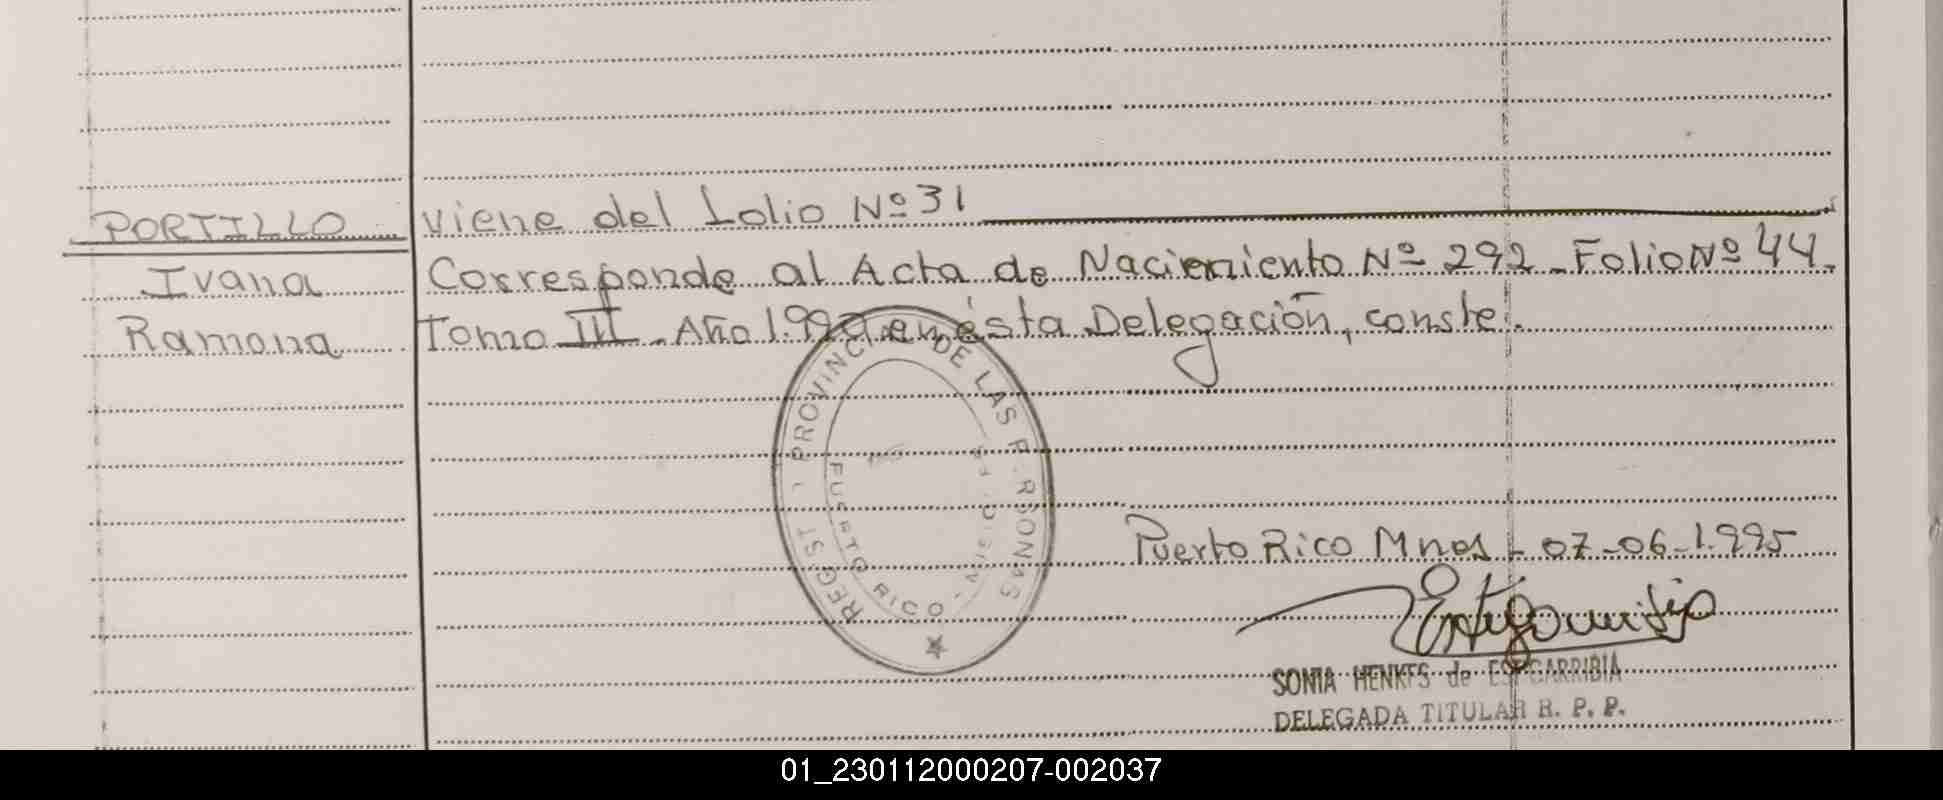 PORTILLO
Ivana
Ramona
viene del folio Nº 31
Corresponde al Acta de Nacimiento Nº 292 - Folio Nº 44 -
Tomo III - Año 1.992 en ésta Delegación, conste.
REGIST PROVINCIAL DE LAS PERSONAS
PUERTO RICO -
Puerto Rico Mnes - 07-06-1.995
SONIA HENKES de ESPGARRIBIA
DELEGADA TITULAR R. P. P.
01_230112000207-002037